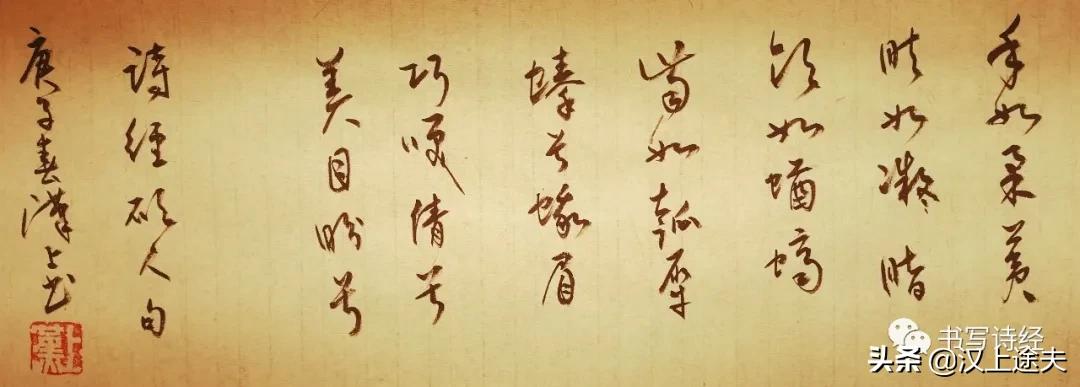 手如柔荑
肤如凝脂
領如蝤蠐
齒如瓠犀
螓首蛾眉
巧咲倩兮
美目盼兮
詩經碩人句
庚子春漢上书
书写诗经
头条@汉上途夫